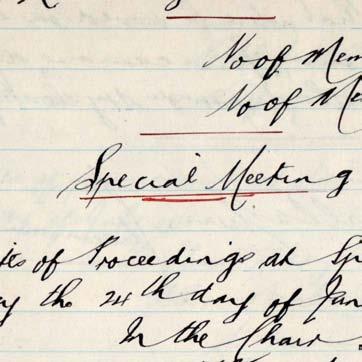 No of Mem
No of Me
Special Meeting
tes of Proceedings at Sp
y the 24th day of Jan
In the Chair